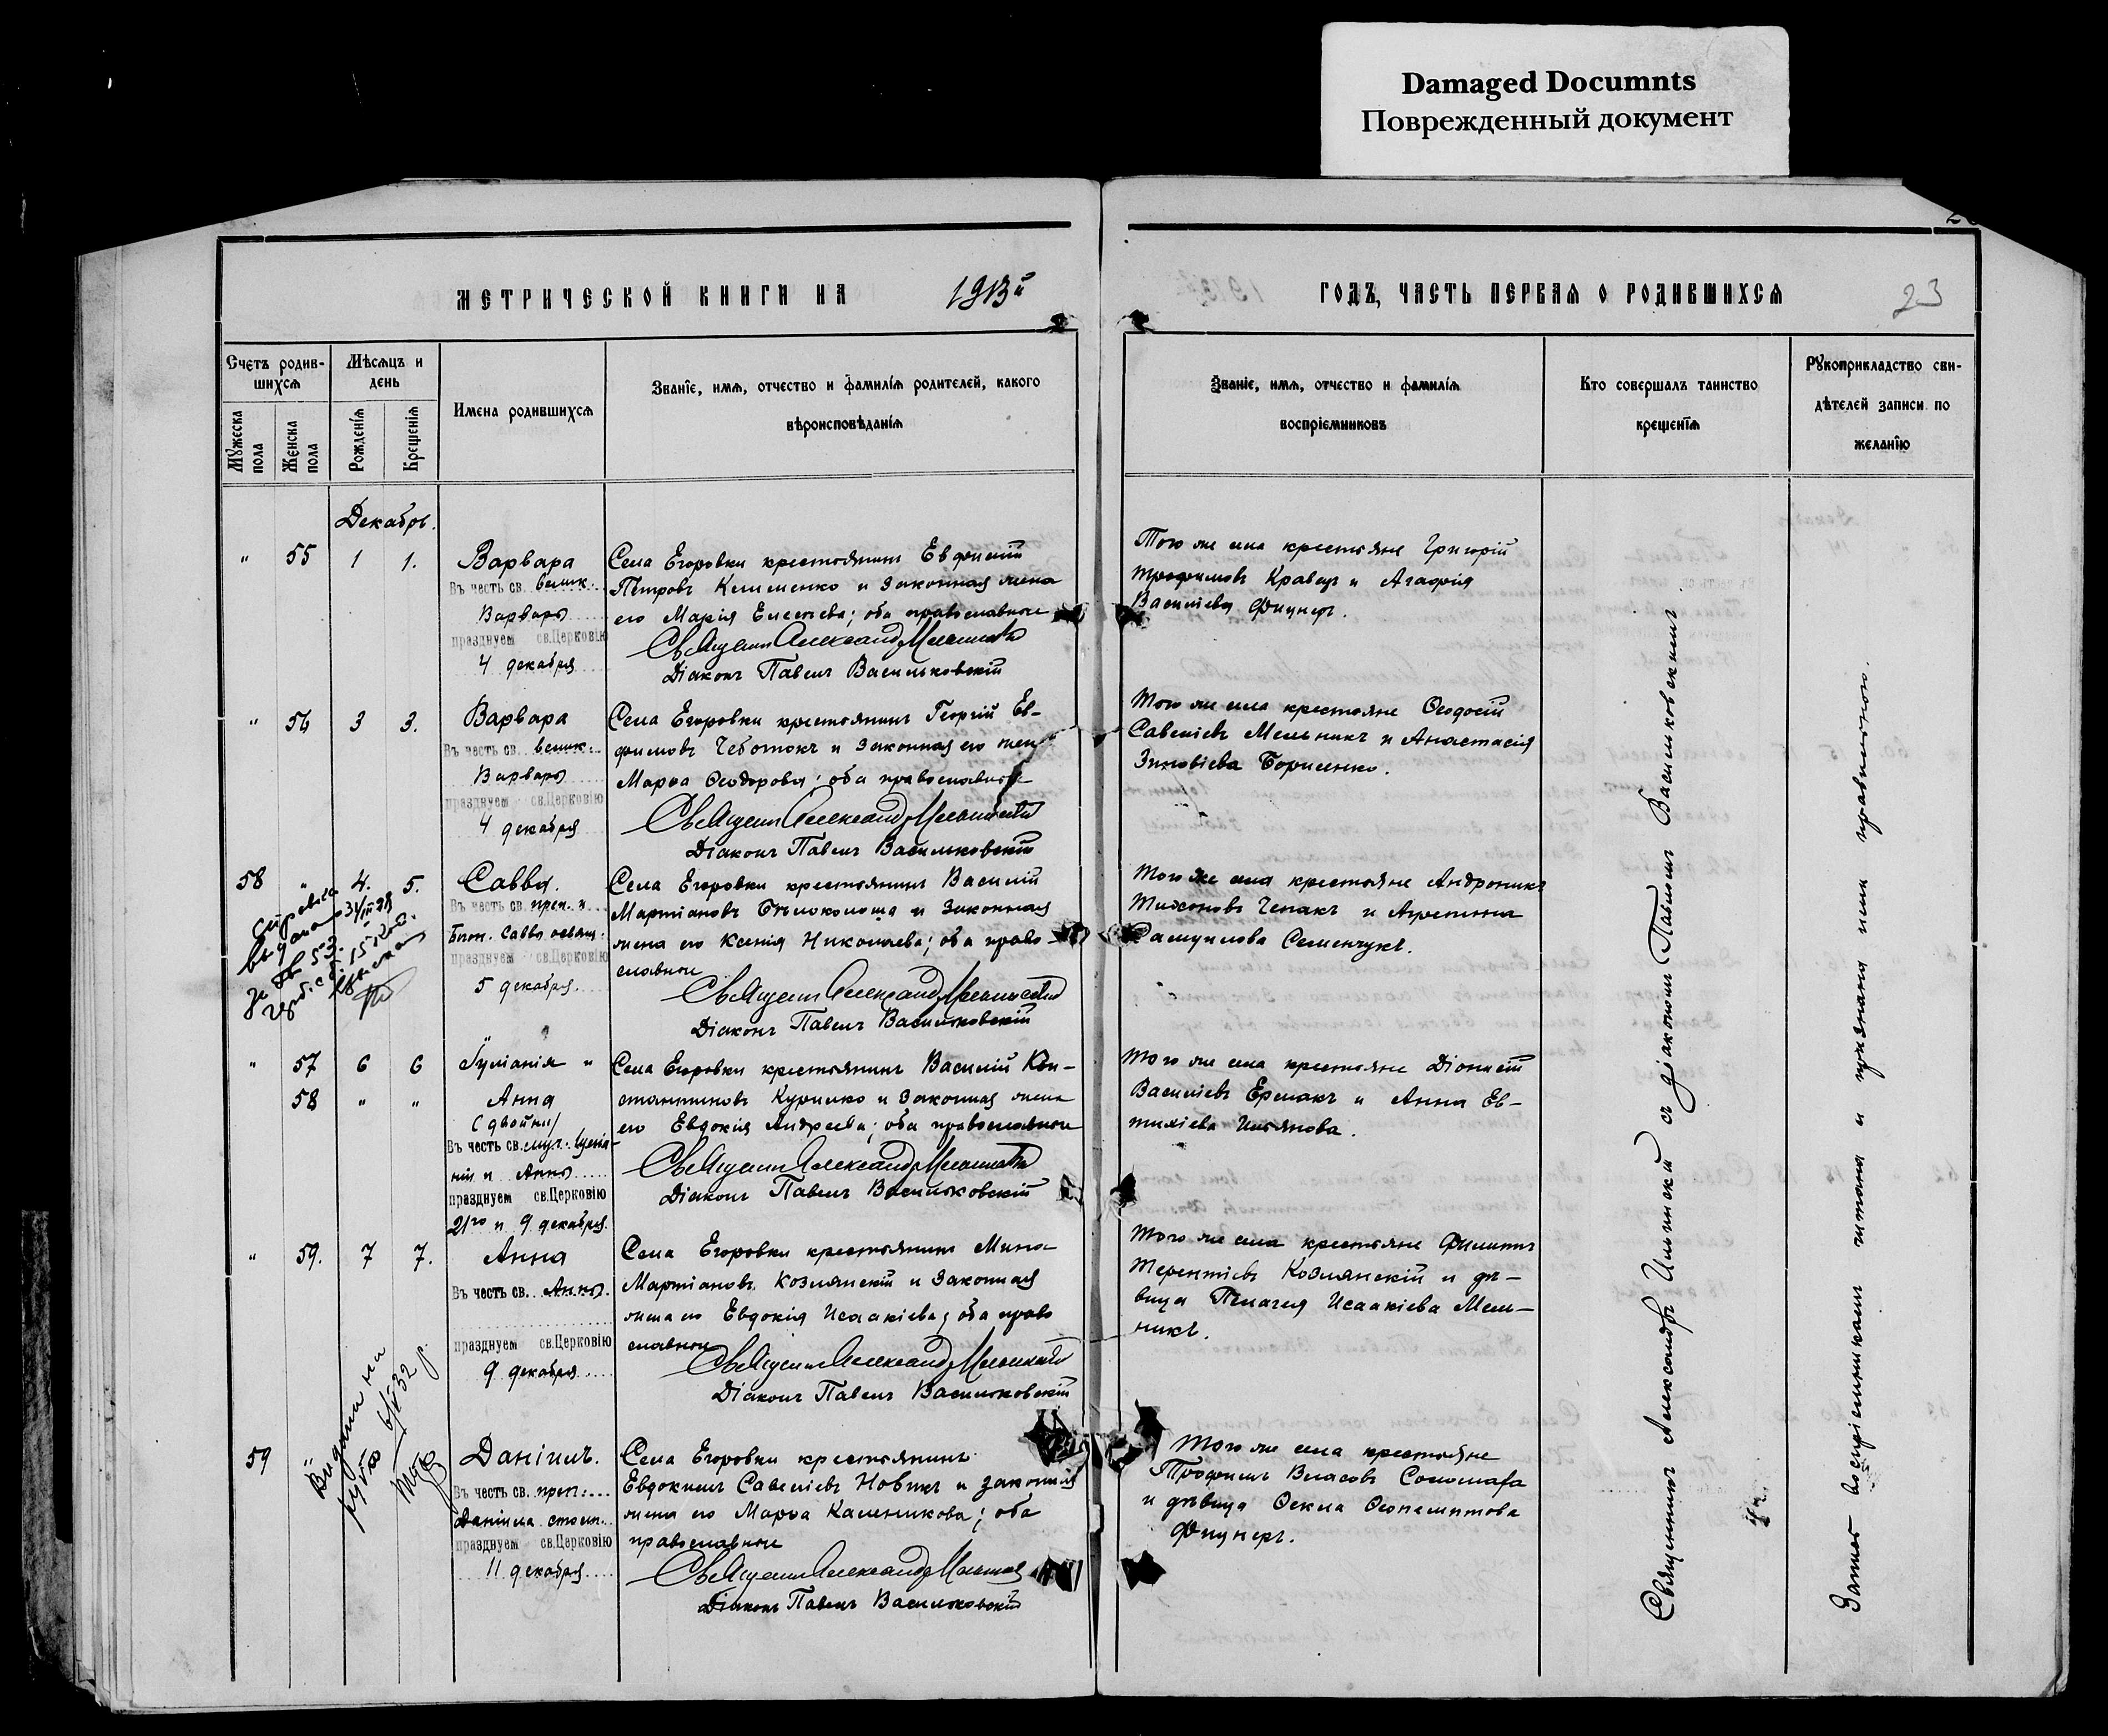 Damaged Documnts
Поврежденный документ
МЕТРИЧЕСКОЙ КНИГИ НА 1913й
ГОДЪ, ЧАСТЬ ПЕРВАЯ О РОДИВШИХСЯ
23
Счетъ родив-
шихся
Мѣсяцъ и
день
Мужеска
пола
Женска
пола
Рожденія
Крещенія
Имена родившихся
Званіе, имя, отчество и фамилія родителей, какого
вѣроисповѣданія
Званіе, имя, отчество и фамилія
воспріемниковъ
Кто совершалъ таинство
крещенія
Рукоприкладство сви-
дѣтелей записи по
желанію
Декабрь.
" 55 1 1.
Варвара
Въ честь св. велик.
Варвары
празднуем св.Церковію
4 декабря
Села Егоровки крестьянинъ Евфимій
Петровъ Клименко и законная жена
его Марія Елисѣева; оба православные
Священ Александръ
Діаконъ Павелъ Васильковскій
Того же села крестьяне Григорій
Трофимовъ Кравецъ и Агафія
Василіева Фицнеръ.
" 56 3 3.
Варвара
Въ честь св. велик.
Варвары
празднуем св.Церковію
4 декабря
Села Егоровки крестьянинъ Георгій Ев-
фимовъ Чеботокъ и законная его жена
Марѳа Ѳеодорова; оба православные
Священ Александръ
Діаконъ Павелъ Васильковскій
Того же села крестьяне Ѳеодосій
Савеліевъ Мельникъ и Анастасія
Зиновіева Борисенко.
58 " 4. 5.
Савва.
Въ честь св. преп. и
Богон. Саввы освящ.
празднуем св.Церковію
5 декабря.
Села Егоровки крестьянинъ Василій
Мартіановъ Бѣлоколоша и законная
жена его Ксенія Николаева; оба право-
славные
Священ Александръ
Діаконъ Павелъ Васильковскій
Того же села крестьяне Андроникъ
Тихоновъ Чепакъ и Агрепина
Самуилова Семенчукъ.
" 57 6 6
58 " "
Іуліанія и
Анна
(двойни)
Въ честь св. муч. Іуліа-
ніи и Анны
празднуем св.Церковію
21го и 9 декабря.
Села Егоровки крестьянинъ Василій Кон-
стантиновъ Курилко и законная жена
его Евдокія Андреева; оба православные
Священ Александръ
Діаконъ Павелъ Васильковскій
Того же села крестьяне Діонисій
Василіевъ Ермакъ и Анна Ев-
тихіева Ильянова.
" 59. 7 7.
Анна
Въ честь св. Анны.
празднуем св.Церковію
9 декабря
Села Егоровки крестьянинъ Мина
Мартіановъ Козлянскій и законная
жена его Евдокія Исаакіева; оба право
славные
Священ Александръ
Діаконъ Павелъ Васильковскій
Того же села крестьяне Филиппъ
Терентіевъ Козлянскій и дѣ-
вица Пелагея Исаакіева Мель-
никъ.
59 "
Даніилъ.
Въ честь св. преп.
Даніила столп.
празднуем св.Церковію
11 декабря
Села Егоровки крестьянинъ
Евдокимъ Савеліевъ Новикъ и законная
жена его Марѳа Калинникова; оба
православные
Священ Александръ
Діаконъ Павелъ Васильковскій
Того же села крестьяне
Трофимъ Власовъ Соломаха
и дѣвица Ѳекла Ѳеопемптова
Фицнеръ.
Священникъ Александръ Ильинскій съ діакономъ Павломъ Васильковскимъ
Запись воспріемникамъ читана и признана ими правильною.